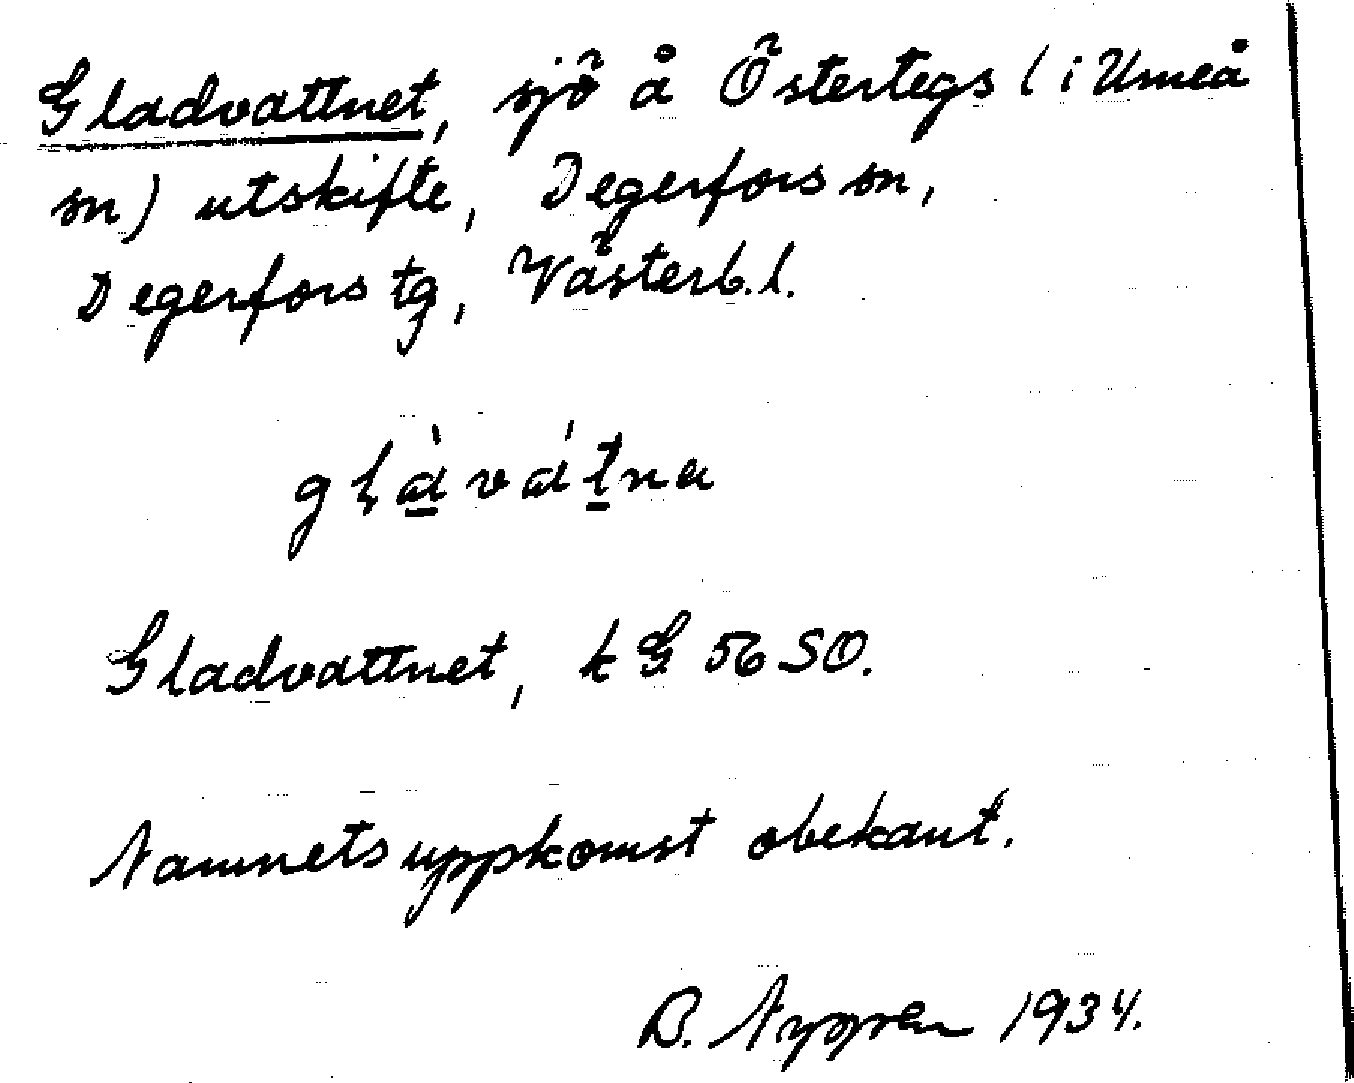 Gladvattnet, sjö å Östertegs (i Umeå
sn) utskifte, Degerfors sn,
Degerfors tg, Västerb. l.
glàvátna
Gladvattnet, k G 56 SO.
Namnets uppkomst obekant.
B. 1934.